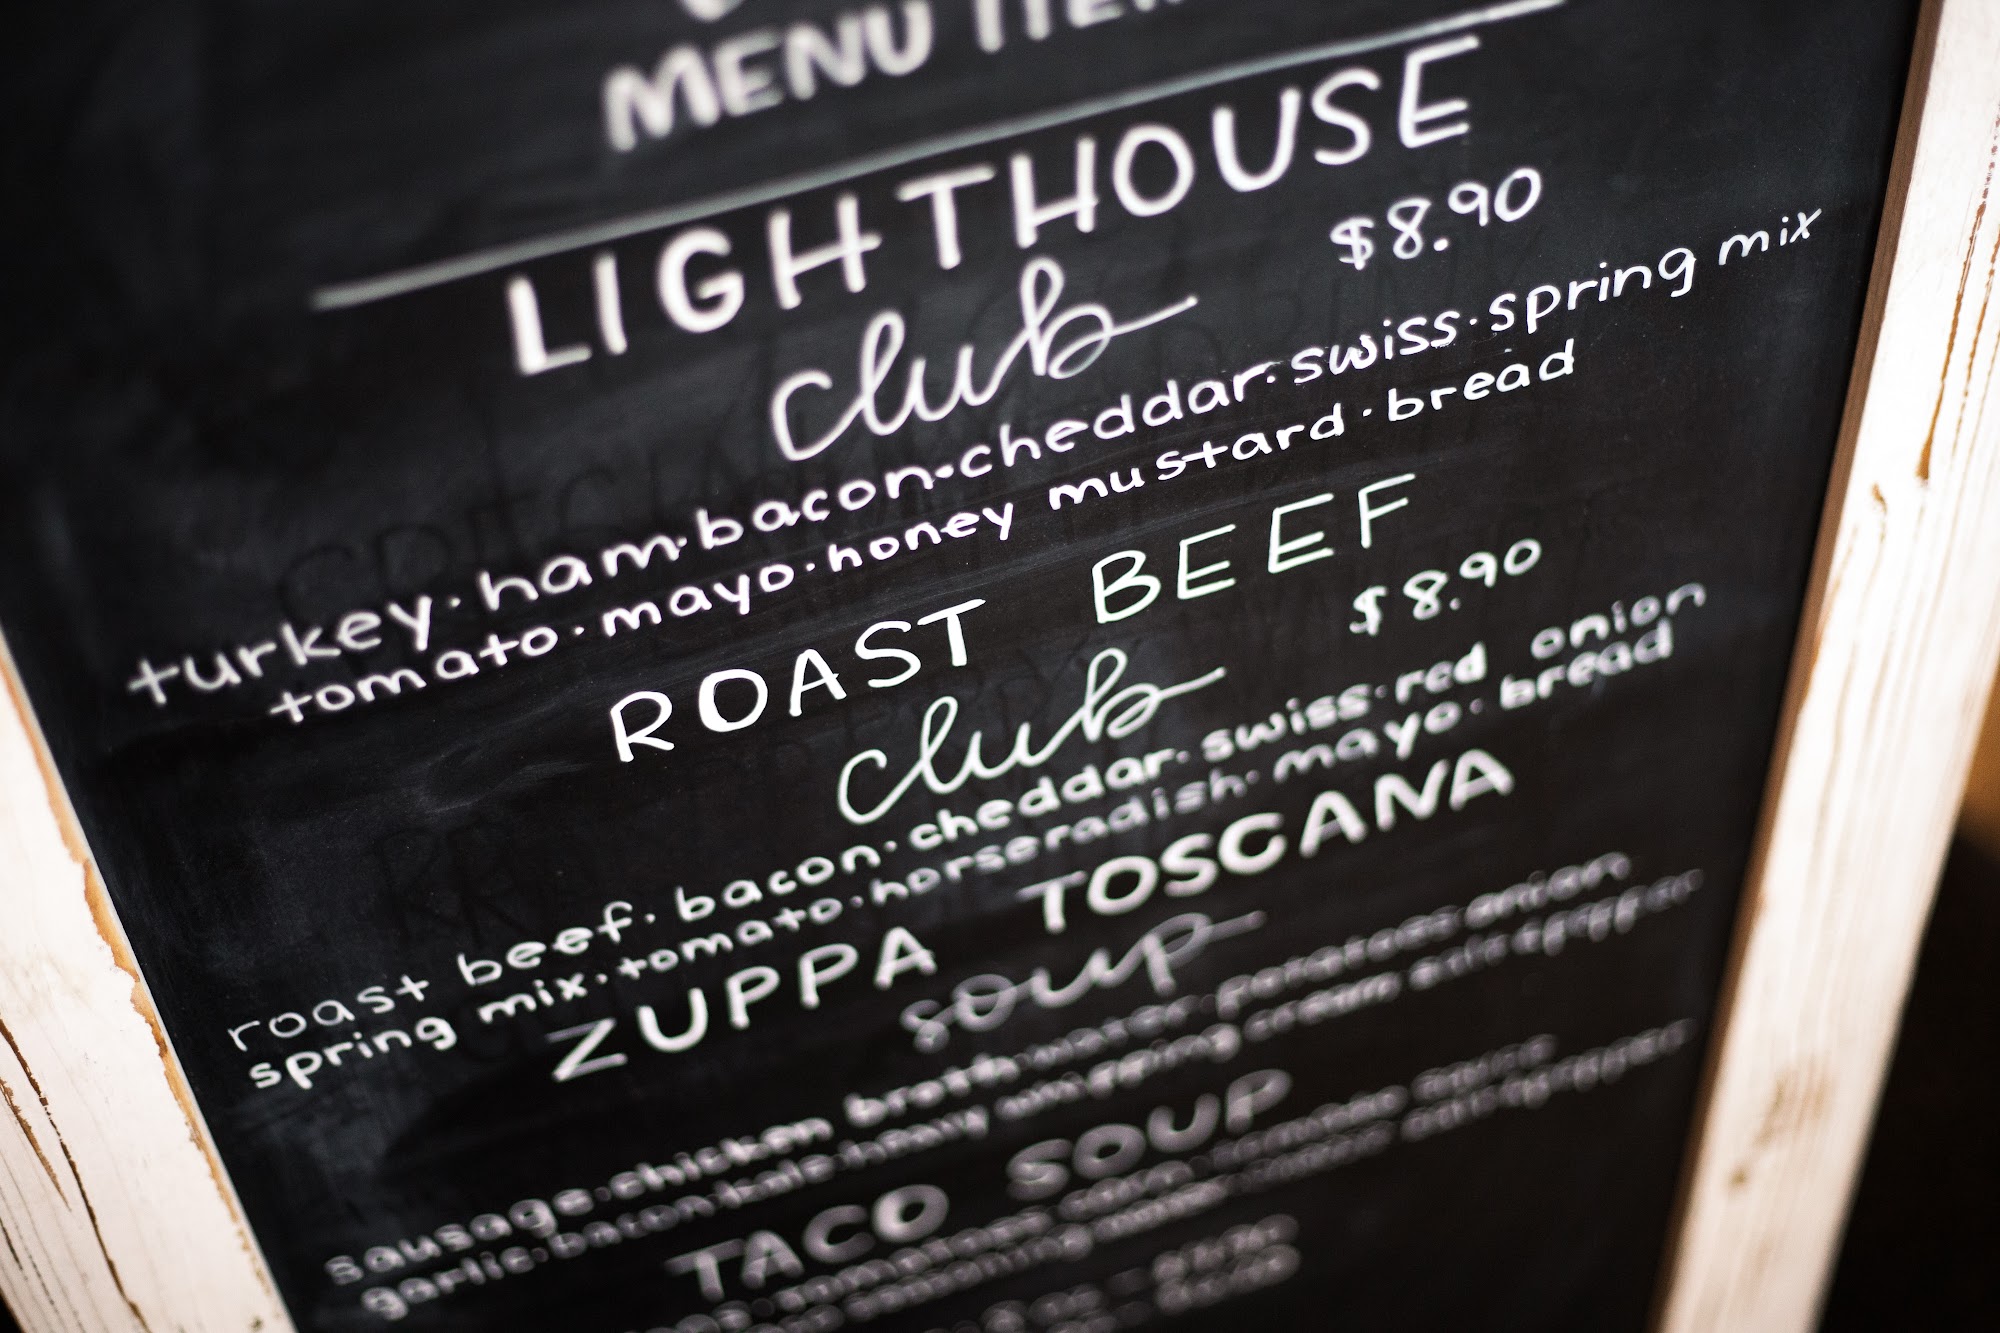 MENU
LIGHTHOUSE
club $8.90
turkey·ham·bacon·cheddar·swiss·spring mix
tomato·mayo·honey mustard·bread
ROAST BEEF
club $8.90
roast beef·bacon·cheddar·swiss·red onion
spring mix·tomato·horseradish·mayo·bread
ZUPPA TOSCANA
soup
sausage·chicken broth·water·potatoes·onion
garlic·bacon·kale·heavy whipping cream·salt·pepper
TACO SOUP